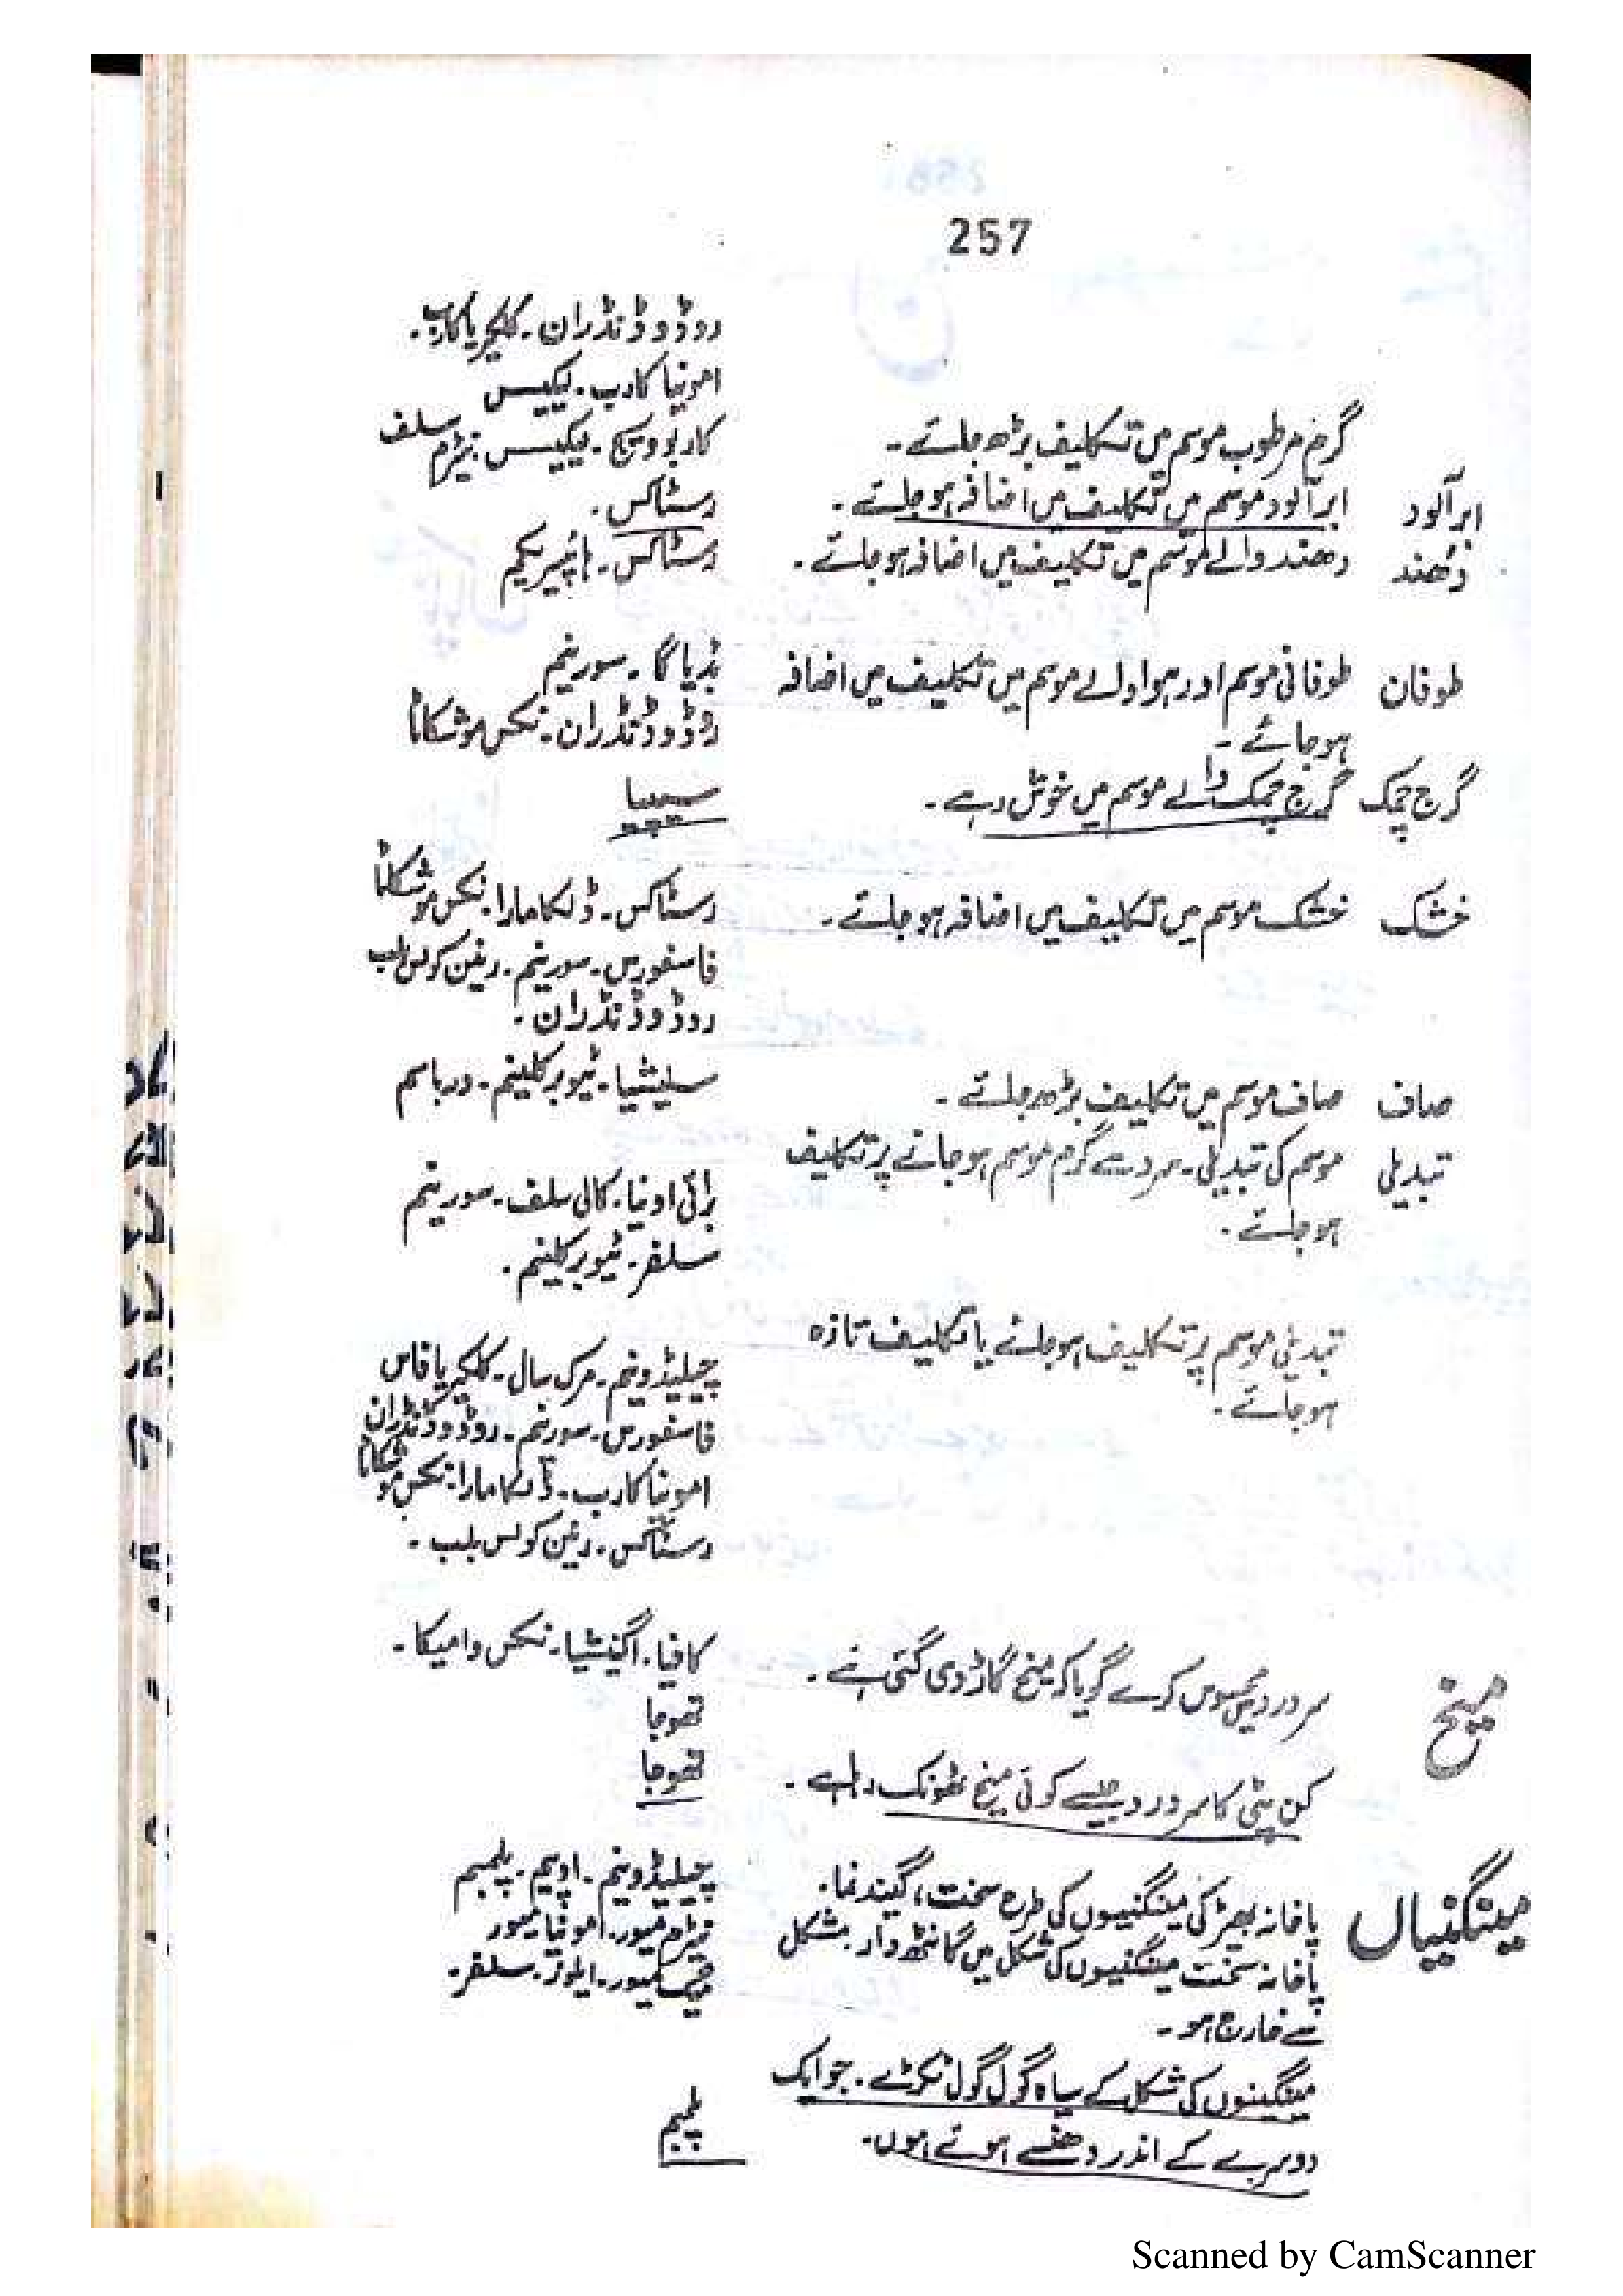 257
روڈوڈنڈران۔ کلکیریا کارب۔
امونیا کارب۔ لیکیسس
گرم مرطوب موسم میں تکلیف بڑھ جائے۔ کاربوویج۔ لیکیسس۔ نیٹرم سلف
ابرآلود ابرآلود موسم میں تکلیف میں اضافہ ہو جائے۔ رسٹاکس۔
دھند دھند والے موسم میں تکلیف میں اضافہ ہو جائے۔ رسٹاکس۔ ہائپیریکم
طوفان طوفانی موسم اور ہوا والے موسم میں تکلیف میں اضافہ بڈیاگا۔ سورینم
ہو جائے۔ روڈوڈنڈران۔ نکس موشکاٹا
گرج چمک گرج چمک والے موسم میں خوش رہے۔ سیپیا
خشک خشک موسم میں تکلیف میں اضافہ ہو جائے۔ رسٹاکس۔ ڈلکامارا۔ نکس موشکاٹا
فاسفورس۔ سورینم۔ رینن کولس بلب
روڈوڈنڈران۔
صاف صاف موسم میں تکلیف بڑھ جائے۔ سلیشیا۔ ٹیوبرکلینم۔ ورباسم
تبدیلی موسم کی تبدیلی۔ سرد سے گرم موسم ہو جانے پر تکلیف
ہو جائے۔ برائی اونیا۔ کالی سلف۔ سورینم
سلفر۔ ٹیوبرکلینم۔
تبدیلی موسم پر تکلیف ہو جائے یا تکلیف تازہ
ہو جائے۔ چیلیڈونیم۔ مرک سال۔ کلکیریا فاس
فاسفورس۔ سورینم۔ روڈوڈنڈران
امونیا کارب۔ ڈلکامارا۔ نکس موشکاٹا
رسٹاکس۔ رینن کولس بلب۔
میخ سر درد یوں محسوس کرے گویا کہ میخ گاڑ دی گئی ہے۔ کافیا۔ اگنیشیا۔ نکس وامیکا۔
تھوجا
کن پٹی کا سر درد جیسے کوئی میخ ٹھونک رہا ہے۔ تھوجا
مینگنیاں پاخانہ بھیڑ کی مینگنیوں کی طرح سخت، گیند نما۔ چیلیڈونیم۔ اوپیم۔ پلمبم
پاخانہ سخت مینگنیوں کی شکل میں گانٹھ دار۔ مشکل نیٹرم میور۔ امونیا میور
سے خارج ہو۔ میگ میور۔ ایلوز۔ سلفر۔
مینگینوں کی شکل کے سیاہ گول گول ٹکڑے۔ جو ایک
دوسرے کے اندر دھنسے ہوئے ہوں۔ پلمبم
Scanned by CamScanner